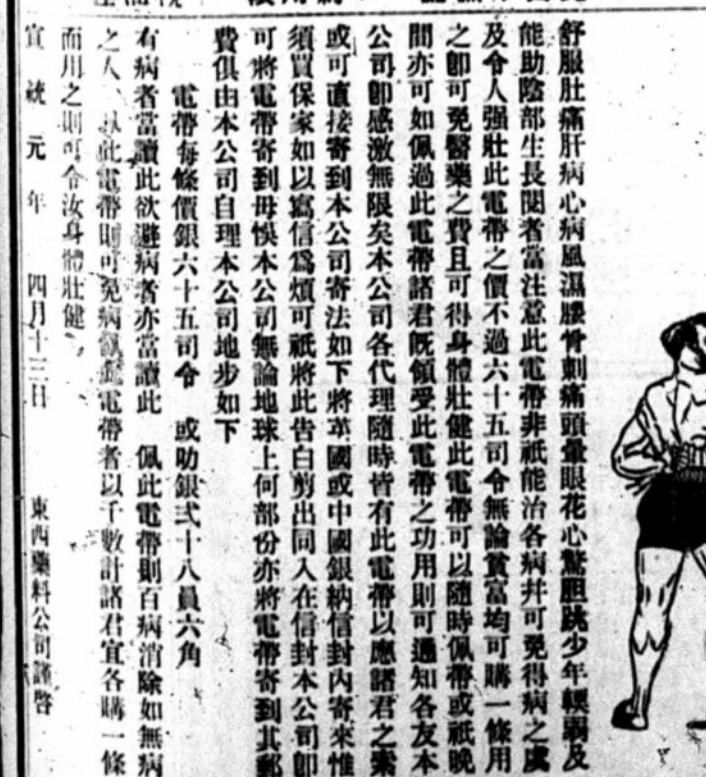 舒服肚痛肝病心病風濕腰骨刺痛頭暈眼花心驚胆跳少年輭弱及
能助陰部生長閱者當注意此電帶非祇能治各病幷可免得病之虞
及令人强壯此電帶之價不過六十五司令無論貧富均可購一條用
之卽可免醫藥之費且可得身體壯健此電帶可以隨時佩帶或祇晚
間亦可如佩過此電帶諸君旣領受此電帶之功用則可通知各友本
公司卽感激無限矣本公司各代理隨時皆有此電帶以應諸君之索
或可直接寄到本公司寄法如下將英國或中國銀納信封內寄來惟
須買保家如以寫信爲煩可祇將此告白剪出同入在信封本公司卽
可將電帶寄到毋悞本公司無論地球上何部份亦將電帶寄到其郵
費俱由本公司自理本公司地步如下
電帶每條價銀六十五司令 或叻銀弍十八員六角
有病者當讀此欲避病者亦當讀此 佩此電帶則百病消除如無病
之人 此電帶則可免病佩此電帶者以千數計諸君宜各購一條
而用之則可令汝身體壯健
宣統元年 四月十三日 東西藥料公司謹啓